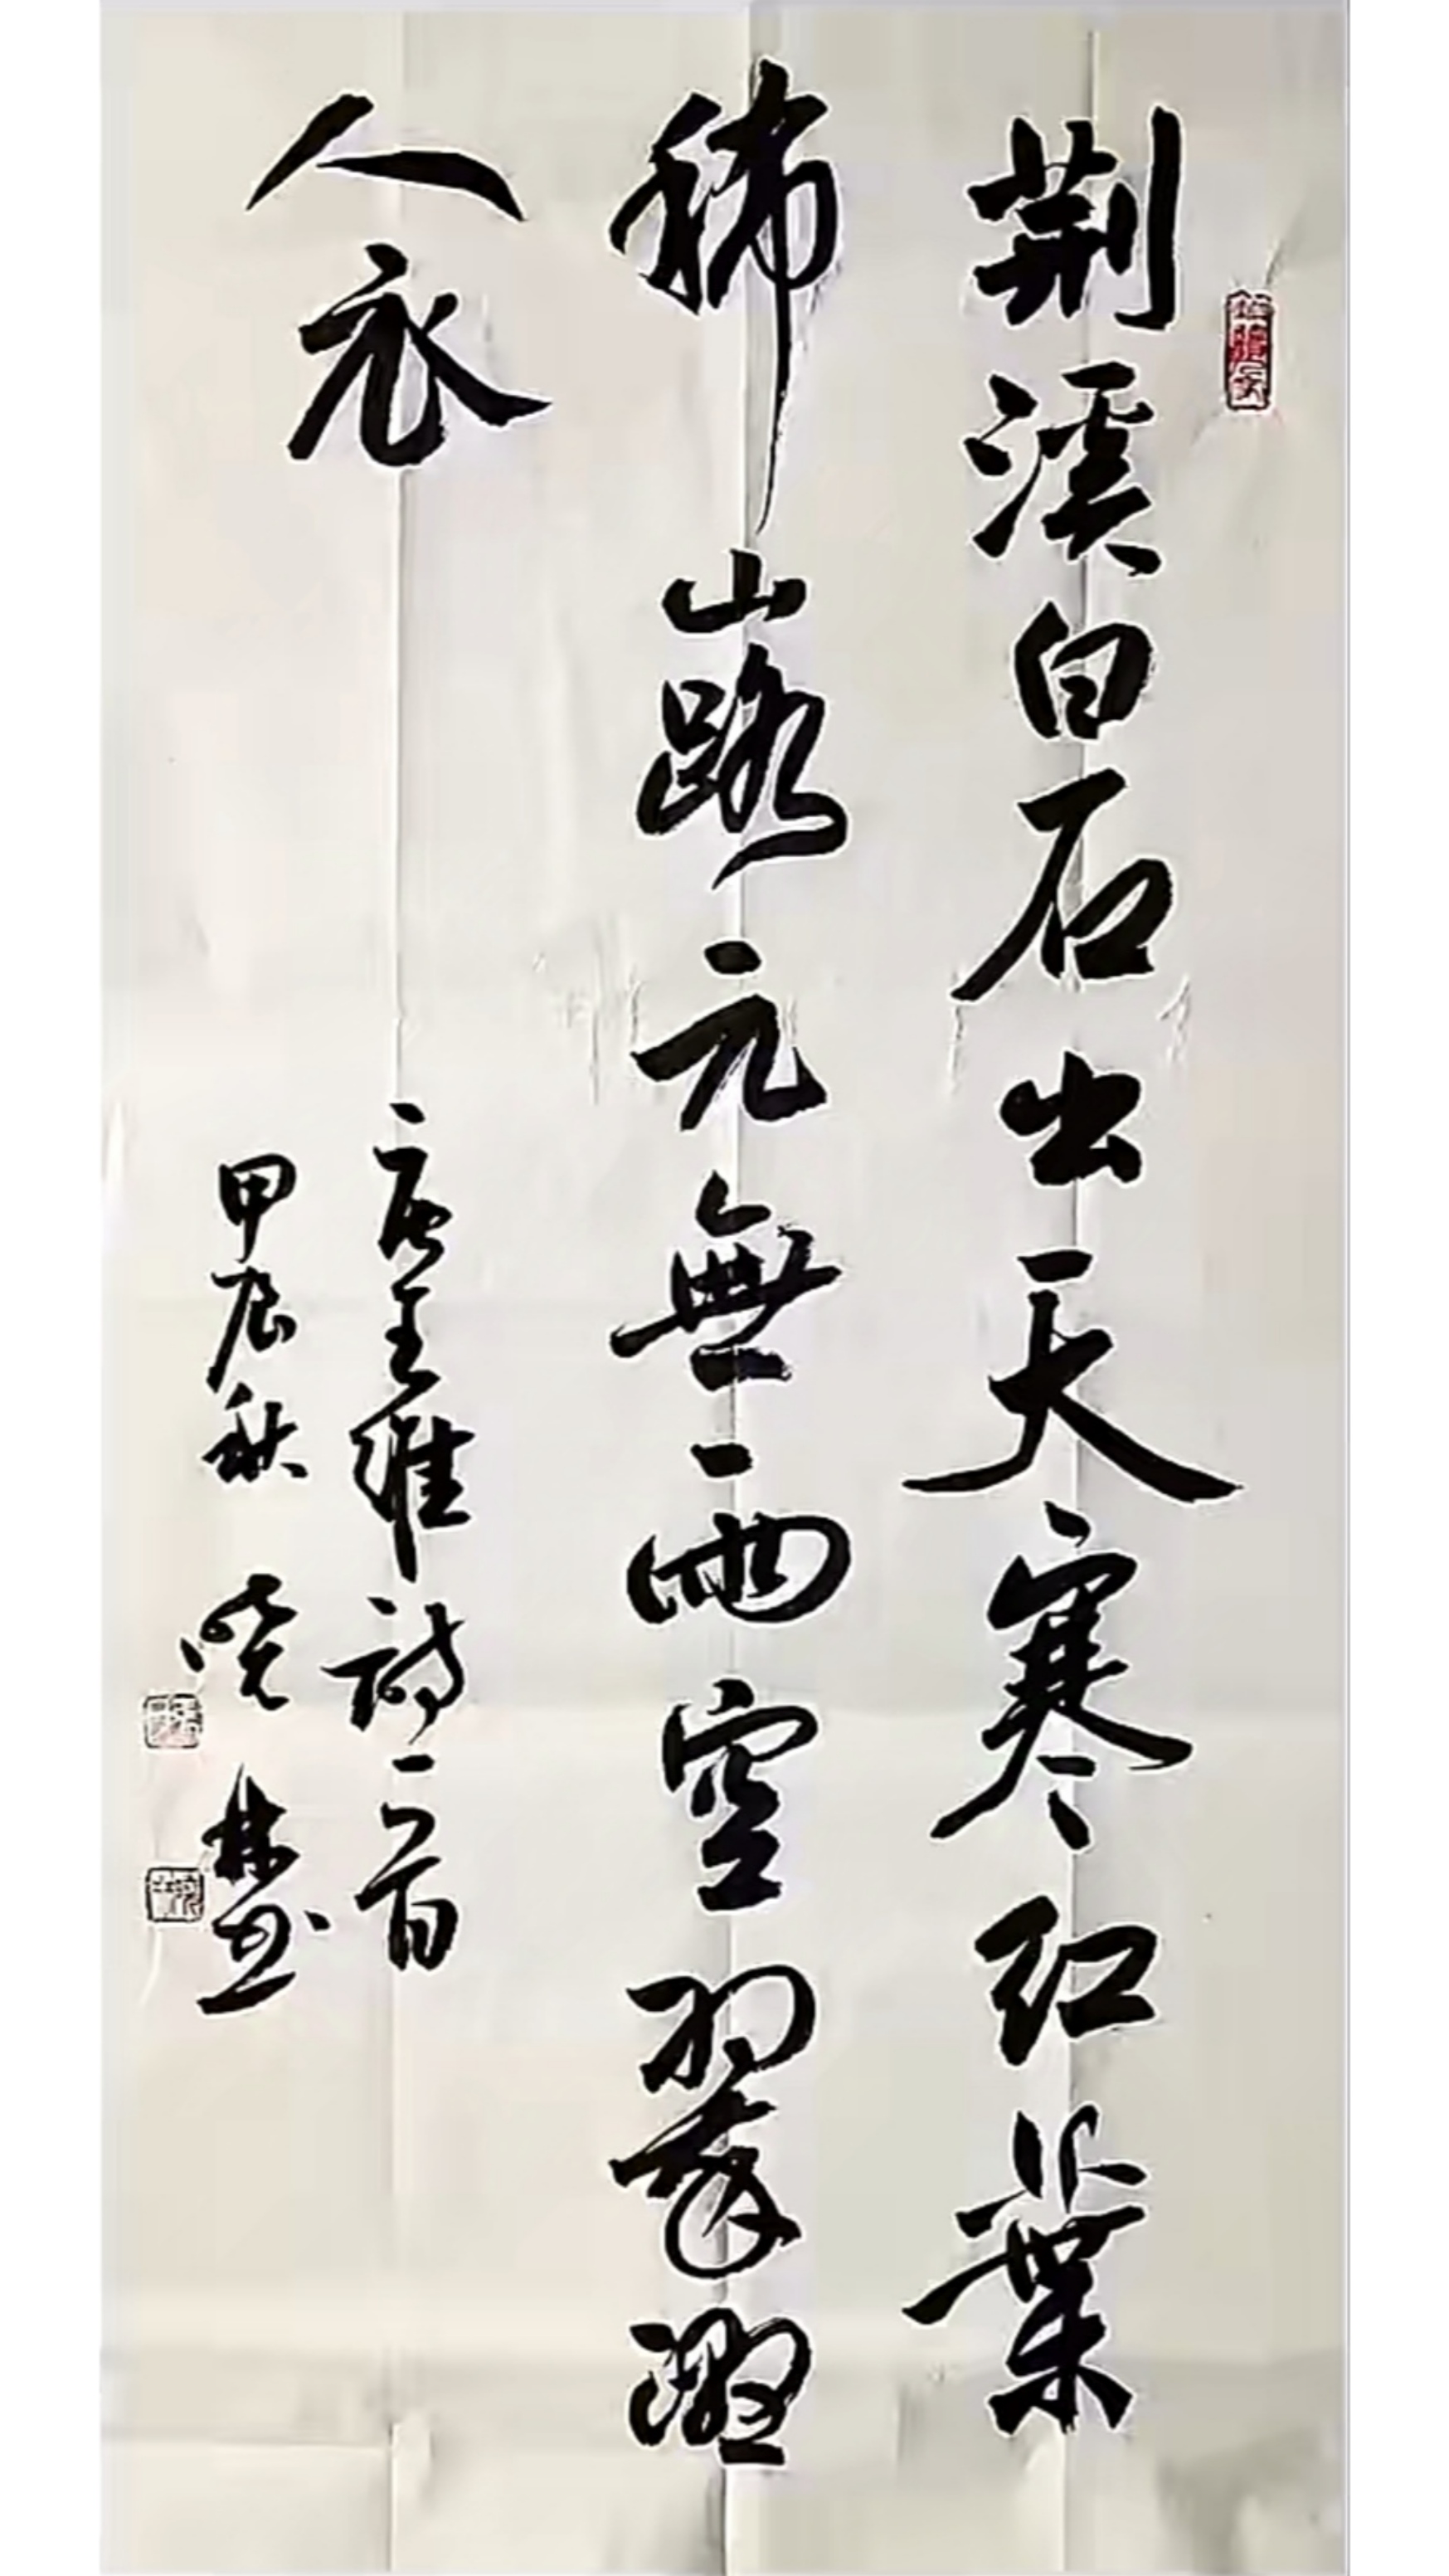 荆溪白石出天寒红葉
稀山路元無雨空翠濕
人衣
唐王維詩一首
甲辰秋 曉林书